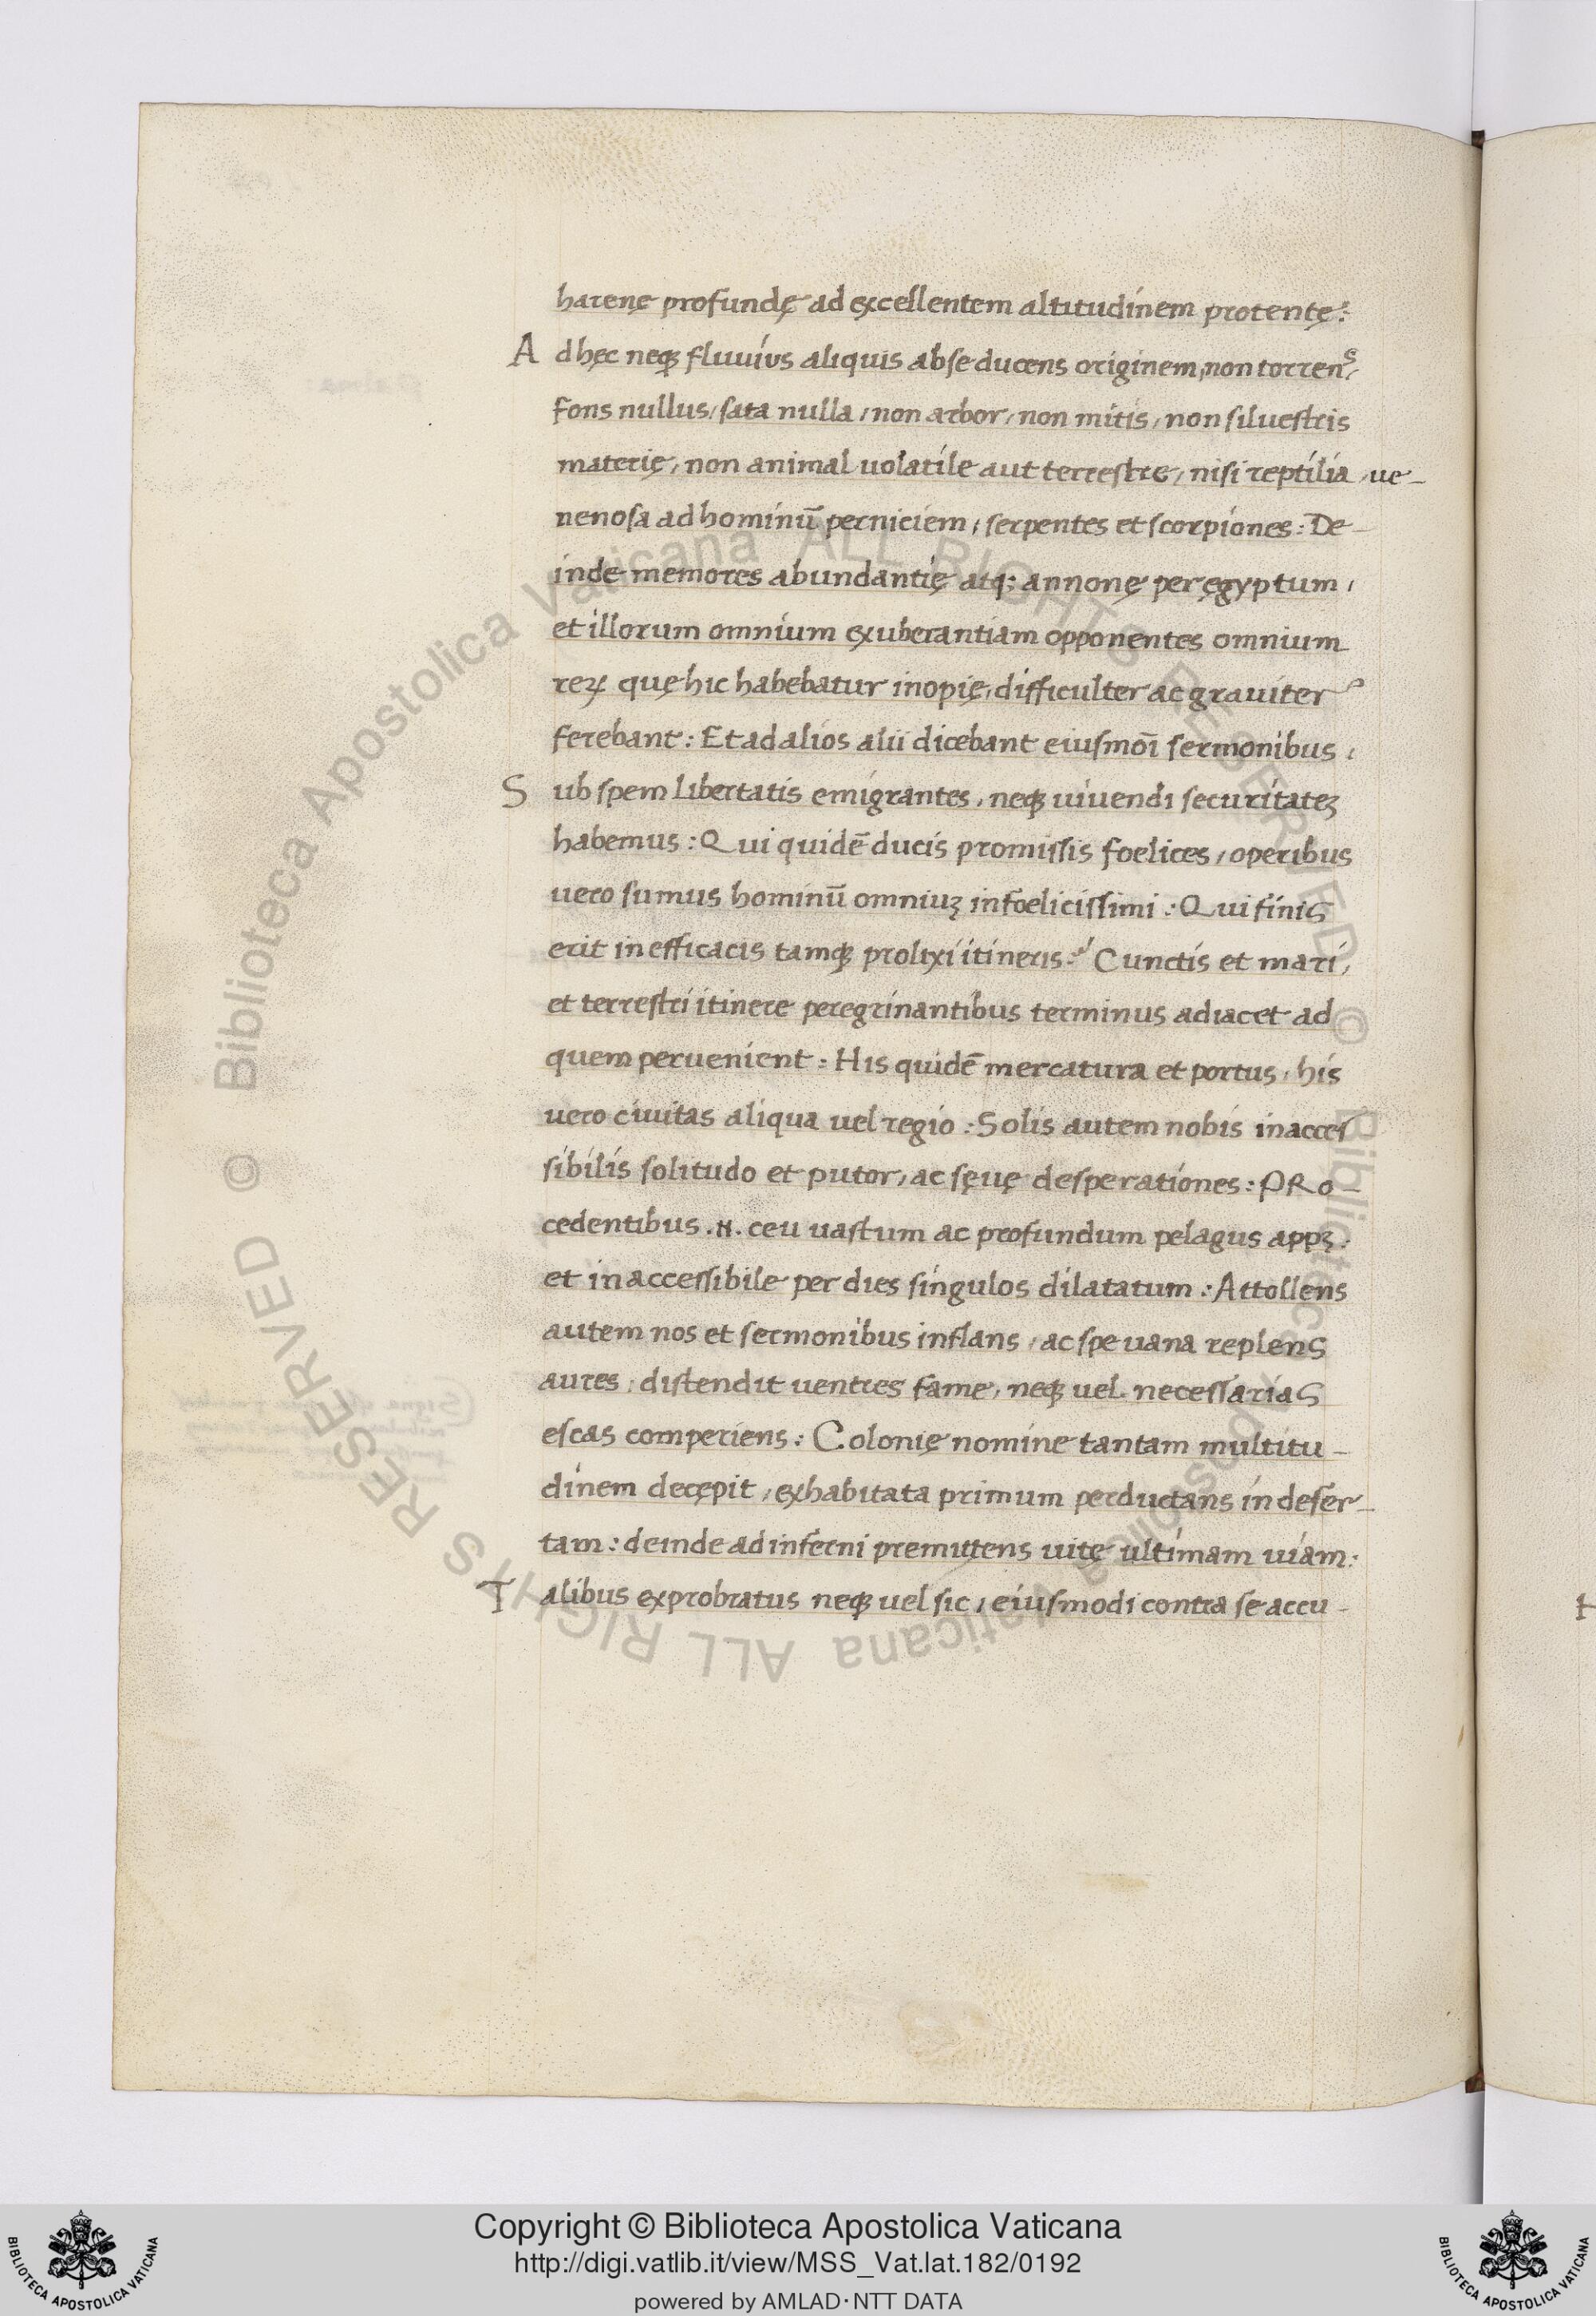 harenę profundę ad excellentem altitudinem protentę:
Ad hęc neq; fluuius aliquis ab se ducens originem, non torrens,
fons nullus, sata nulla, non arbor, non mitis, non siluestris
materię, non animal uolatile aut terrestre, nisi reptilia, ue-
nenosa ad hominū perniciem, serpentes et scorpiones: De-
inde memores abundantię atq; annonę per ęgyptum,
et illorum omnium exuberantiam opponentes omnium
reꝝ quę hic habebatur inopię, difficulter ac grauiter
ferebant: Et ad alios alii dicebant eiusmōi sermonibus,
Sub spem libertatis emigrantes, neq; uiuendi securitateꝫ
habemus: Qui quidē ducis promissis foelices, operibus
uero sumus hominū omniuꝫ infoelicissimi: Qui finis
erit inefficacis tamq; prolixi itineris? Cunctis et mari,
et terrestri itinere peregrinantibus terminus adiacet ad
quem peruenient: His quidē mercatura et portus, his
uero ciuitas aliqua uel regio: Solis autem nobis inacces
sibilis solitudo et putor, ac sęuę desperationes: PRo-
cedentibus .N. ceu uastum ac profundum pelagus appꝫ:
et inaccessibile per dies singulos dilatatum: Attollens
autem nos et sermonibus inflans, ac spe uana replens
aures, distendit uentres fame, neq; uel necessarias
escas comperiens: Colonię nomine tantam multitu-
dinem decępit, exhabitata primum perductans in deser-
tam: deinde ad inferni premittens uitę ultimam uiam:
Talibus exprobratus neq; uel sic, eiusmodi contra se accu-
Copyright © Biblioteca Apostolica Vaticana
http://digi.vatlib.it/view/MSS_Vat.lat.182/0192
powered by AMLAD·NTT DATA
BIBLIOTECA APOSTOLICA VATICANA
BIBLIOTECA APOSTOLICA VATICANA
© Biblioteca Apostolica Vaticana ALL RIGHTS RESERVED © Biblioteca Apostolica Vaticana ALL RIGHTS RESERVED